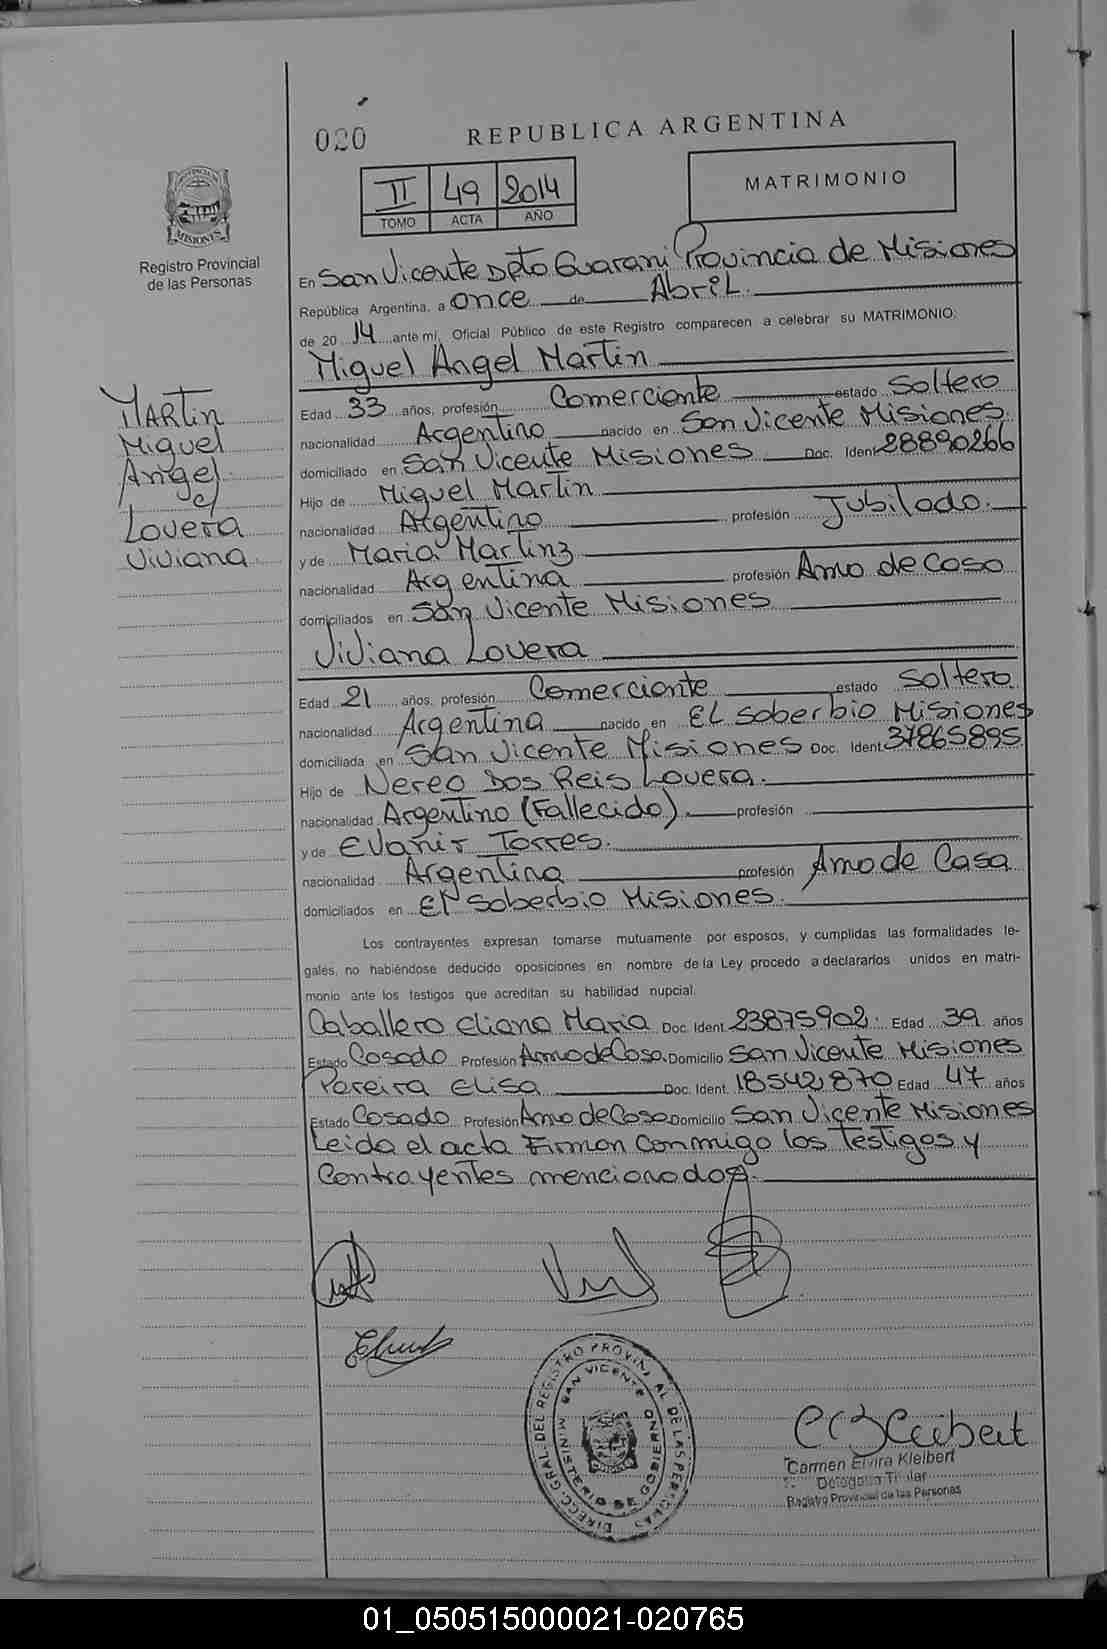 020
REPUBLICA ARGENTINA
II 49 2014
TOMO ACTA AÑO
MATRIMONIO
MISIONES
Registro Provincial
de las Personas
En San Vicente Dpto Guarani Provincia de Misiones
República Argentina, a once de Abril.
de 20 14 ante mí, Oficial Público de este Registro comparecen a celebrar su MATRIMONIO:
Miguel Angel Martin
Martin
Miguel
Angel
c/
Lovera
Viviana
Edad 33 años, profesión Comerciante estado Soltero
nacionalidad Argentino nacido en San Vicente Misiones.
domiciliado en San Vicente Misiones Doc. Ident 28890266
Hijo de Miguel Martin
nacionalidad Argentino profesión Jubilado.
y de Maria Martinz
nacionalidad Argentina profesión Amo de Casa
domiciliados en San Vicente Misiones
Viviana Lovera
Edad 21 años, profesión Comerciante estado Soltero
nacionalidad Argentina nacido en El Soberbio Misiones
domiciliada en San Vicente Misiones Doc. Ident. 37865895
Hijo de Nereo Dos Reis Lovera.
nacionalidad Argentino (Fallecido). profesión
y de Evanir Torres.
nacionalidad Argentina profesión Amo de Casa
domiciliados en El Soberbio Misiones.
Los contrayentes expresan tomarse mutuamente por esposos, y cumplidas las formalidades le-
gales, no habiéndose deducido oposiciones en nombre de la Ley procedo a declararlos unidos en matri-
monio ante los testigos que acreditan su habilidad nupcial.
Caballero Eliana Maria Doc. Ident. 23875902. Edad 39 años
Estado Casado Profesión Amo de Casa. Domicilio San Vicente Misiones
Pereira Elisa Doc. Ident. 18542870 Edad 47 años
Estado Casado Profesión Amo de Casa Domicilio San Vicente Misiones
Leida el acta Firman conmigo los testigos y
contrayentes mencionados.
DIRECC. GRAL. DEL REGISTRO PROVINCIAL DE LAS PERSONAS
MINISTERIO DE GOBIERNO SAN VICENTE
Carmen Elvira Kleibert
Delegada Titular
Registro Provincial de las Personas
01_050515000021-020765